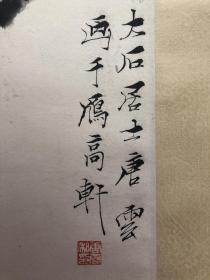 大石居士唐雲
画于鴈高軒